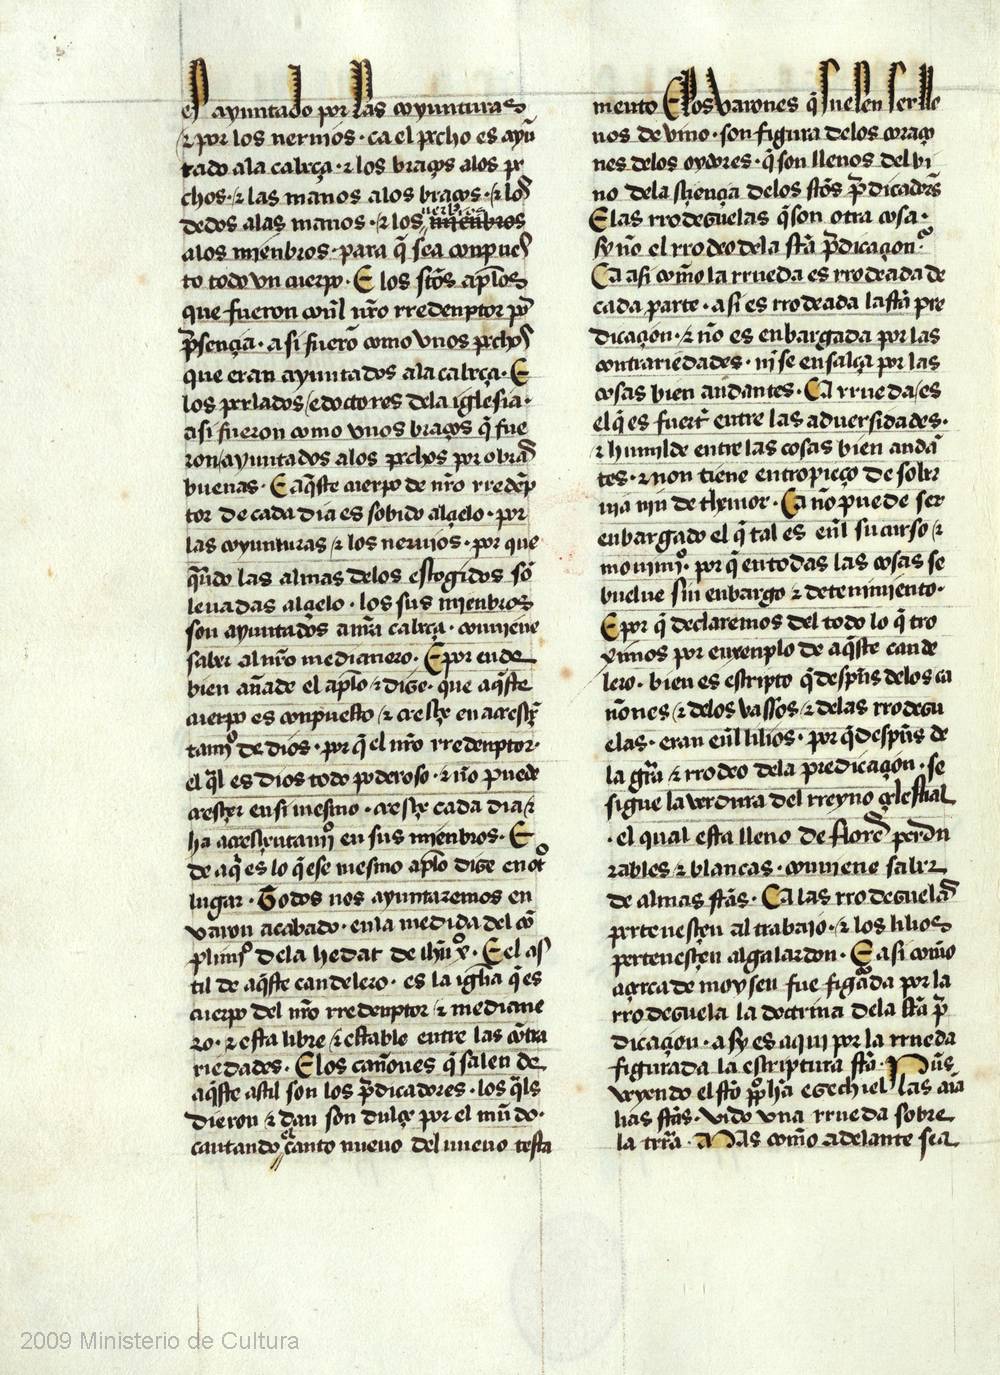 es ayuntado por las coyunturas
⁊ por los nermos · ca el pecho es ayũ
tado ala cabeça · ⁊ los braços alos pe
chos · ⁊ las manos alos braços · ⁊ los
dedos alas manos · ⁊ los nerbios mienbros
alos mienbros · para q̃ sea conpues
to todo vn cuerpo · E los sc̃os aplõs
que fueron con̄l nr̃o rredenptor por
p̃sençia · asi fuerõ como vnos pechos
que eran ayuntados ala cabeça · E
los perlados / e doctores dela iglesia ·
asi fueron como vnos braços q̃ fue
ron / ayuntados alos pechos por obras
buenas · E aq̃ste cuerpo de nr̃o rredẽp
tor de cada dia es sobido al çielo · por
las coyunturas ⁊ los neruios · por que
q̃ndo las almas delos escogidos sõ
leuadas al çielo · los sus mienbros
son ayuntados a mr̃a cabeça · conuiene
saber al nr̃o medianero · E por ende
bien añade el aplõ ⁊ dize · que aq̃ste
cuerpo es conpuesto ⁊ cresçe en acresçẽ
tamjº de dios · por q̃ el nr̃o rredenptor ·
el q̃l es dios todo poderoso · ⁊ nõ puede
cresçer en si mesmo · cresçe cada dia ⁊
ha acresçentamjº en sus mienbros · E
de aq̃ es lo q̃ ese mesmo aplõ dize en otº
lugar · Todos nos ayuntaremos en
varon acabado · en la medida del cõ
plimjº dela hedat de ihũ xº · E el as
til de aq̃ste candelero · es la iglia q̃ es
cuerpo del nr̃o rredenptor ⁊ mediane
ro · ⁊ esta libre ⁊ estable entre las cõtra
riedades · E los cañones q̃ salen de
aq̃ste astil son los p̃dicadores · los q̃ls
dieron ⁊ dan son dulçe por el mũdo ·
cantando el canto nueuo del nueuo testa
mento E los varones q̃ suelen ser lle
nos de vino · son figura delos coraço
nes delos oydores · q̃ son llenos del vi
no dela sçiençia delos sc̃os p̃dicadores
E las rrodeguelas q̃ son otra cosa ·
sy nõ el rrodeo dela sc̃a p̃dicaçion ?
Ca asi como la rrueda es rrodeada de
cada parte · asi es rrodeada la sc̃a pre
dicaçion · ⁊ nõ es enbargada por las
contrariedades · nj̃ se ensalça por las
cosas bien andantes · Ca rrueda / es
el q̃ es fuerte entre las aduersidades ·
⁊ humilde entre las cosas bien andã
tes · ⁊ non tiene entropieço de sober
uia nin de themor · Ca nõ puede ser
enbargado el q̃ tal es en̄l su curso ⁊
mouimjº · por q̃ en todas las cosas se
buelue sin enbargo ⁊ detenimiento ·
E por q̃ declaremos del todo lo q̃ tro
ximos por enxenplo de aq̃ste cande
lero · bien es escripto q̃ despũs delos ca
ñones ⁊ delos vassos ⁊ delas rrodegu
elas · eran en̄l lilios · por q̃ despũs de
la gr̃a ⁊ rrodeo dela predicaçion · se
sigue la verdura del rreyno çelestial
· el qual esta lleno de flores perdu
rables ⁊ blancas · conuiene saber
de almas sc̃as · Ca las rrodeguelas
pertenesçen al trabajo · ⁊ los lilios
pertenesçen al galardon · E asi como
açerca de moysen fue figᵃda por la
rrodeguela la doctrina dela sc̃a p̃
dicaçion · asy es aqui por la rrueda
figurada la escriptura sc̃a · Pũs
veyendo el sc̃o pph̃a ezechiel las aĩa
lias sc̃as · vido vna rrueda sobre
la trr̃a · Mas como adelante sea
2009 Ministerio de Cultura